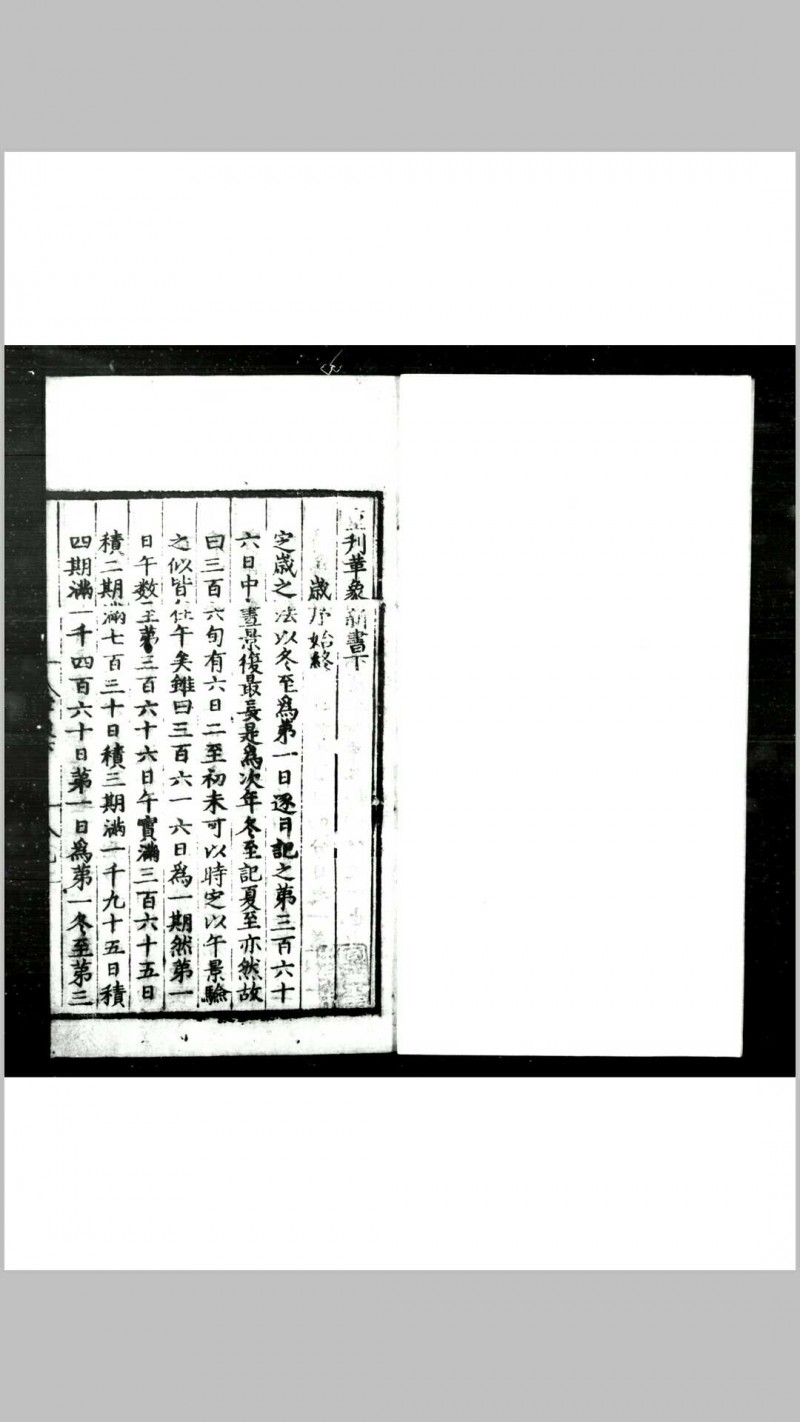 刊革象新書下
歲序始終
定歲之法以冬至爲第一日逐日記之第三百六十
六日中晝景復最長是爲次年冬至記夏至亦然故
曰三百六旬有六日二至初未可以時定以午景驗
之似皆在午矣雖曰三百六一六日爲一期然第一
日午数至第三百六十六日午實滿三百六十五日
積二期滿七百三十日積三期滿一千九十五日積
四期滿一千四百六十日第一日爲第一冬至第三